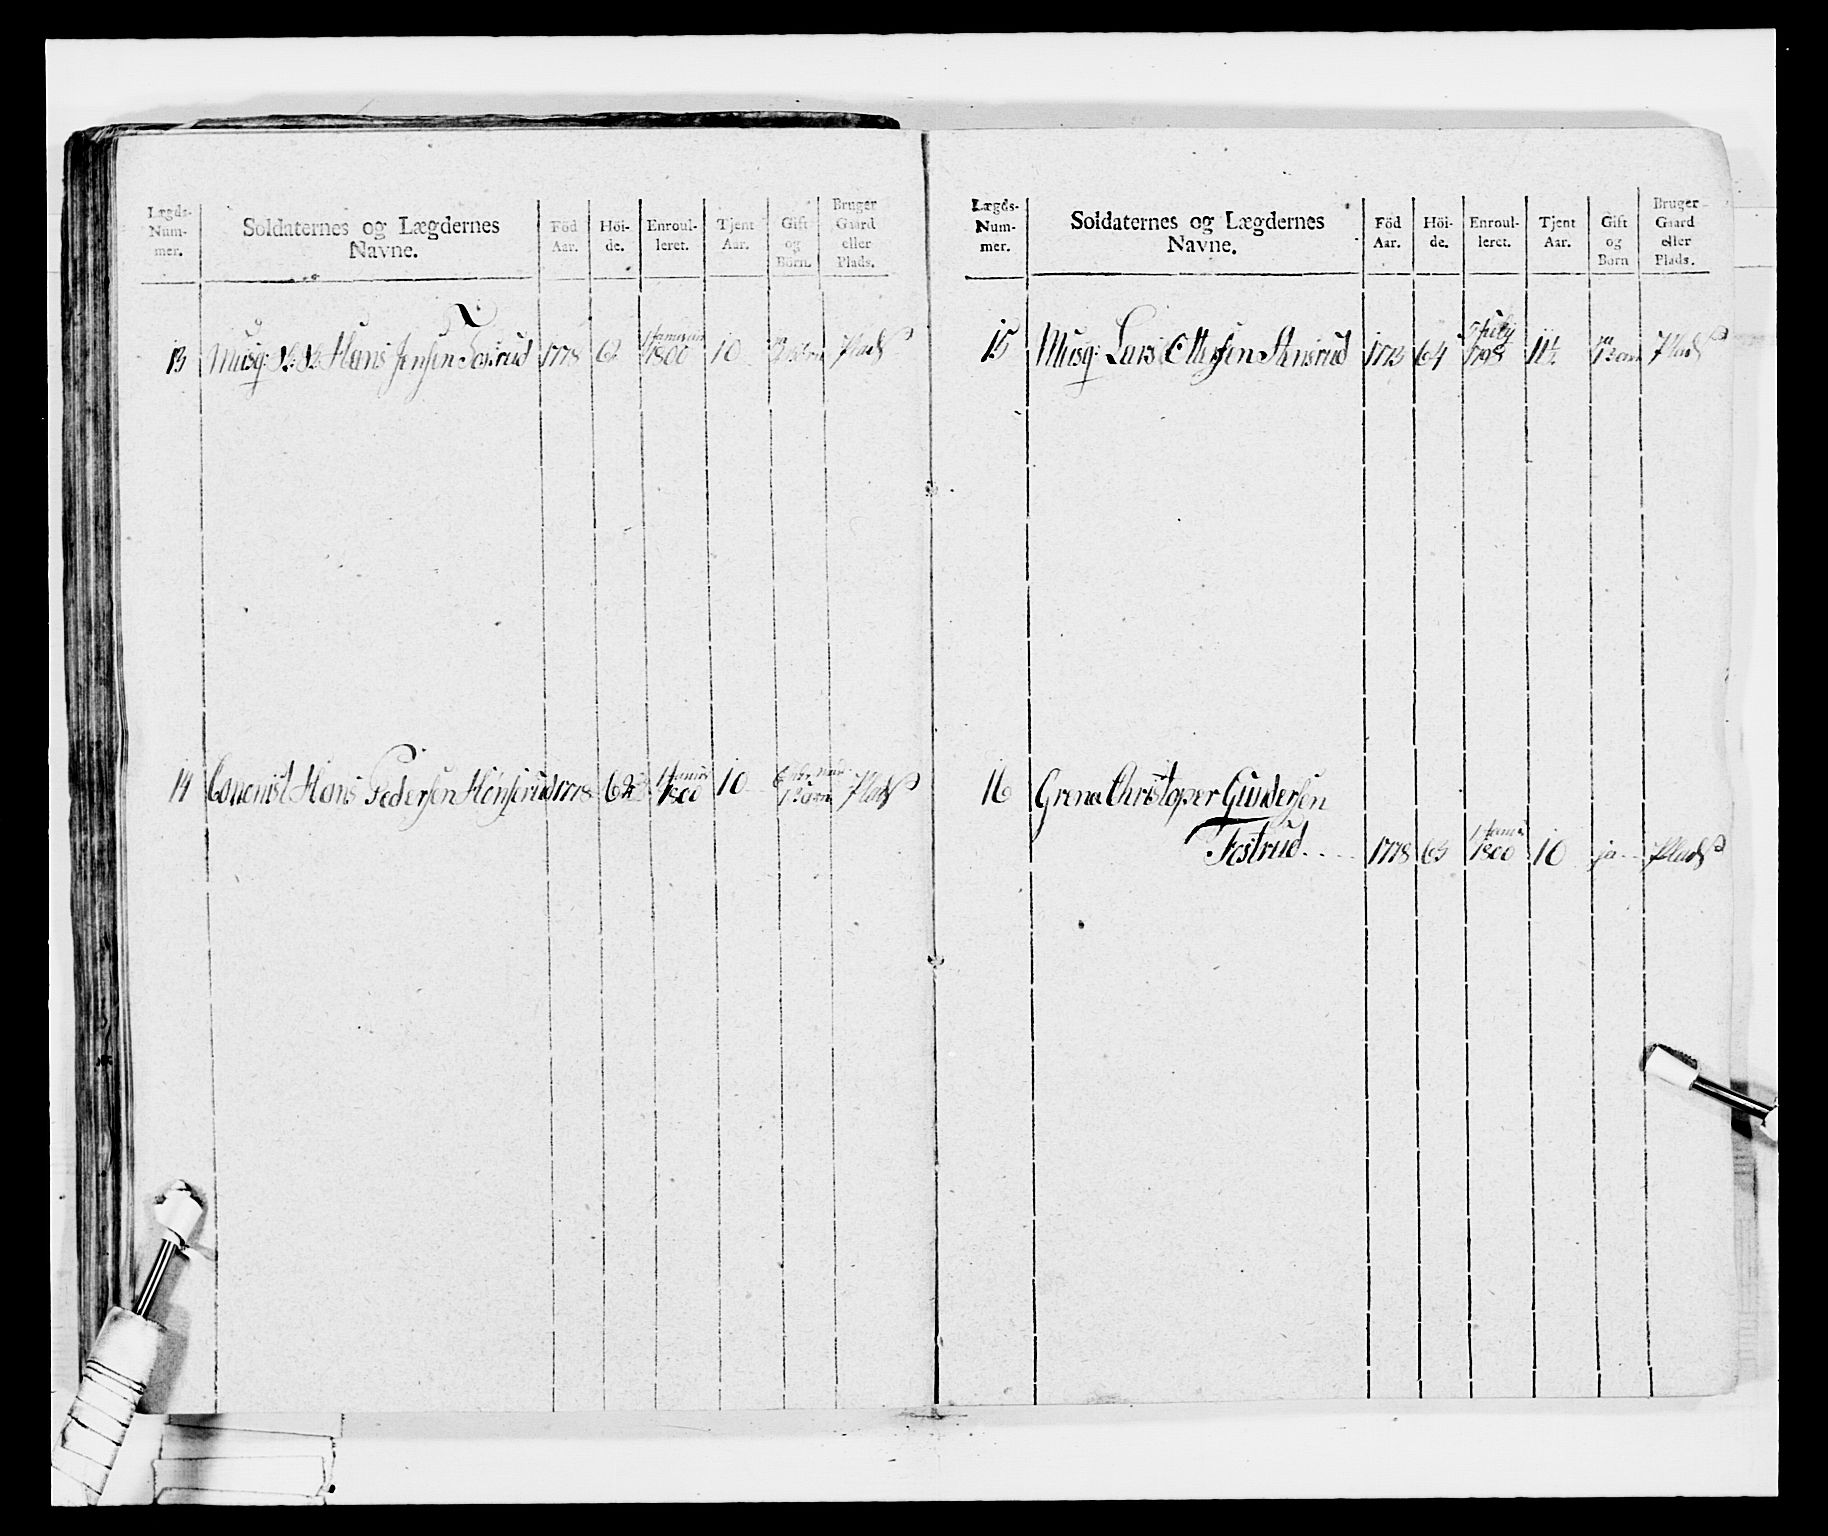 Lægds-
Num-
mer.
Soldaternes og Lægdernes
Navne.
Föd
Aar.
Höi-
de.
Enroul-
leret.
Tjent
Aar.
Gift
og
Börn.
Bruger
Gaard
eller
Plads.
13 Musq: Hans Jensen 1778 62 1 Januar 1800 10 Plads
14 Hans Pedersen 1778 62 1 Januar 1800 10 1 Barn Plads
Lægds-
Num-
mer.
Soldaternes og Lægdernes
Navne.
Föd
Aar.
Höi-
de.
Enroul-
leret.
Tjent
Aar.
Gift
og
Börn
Bruger
Gaard
eller
Plads.
15 Musq: Lars Ottersen Stensrud 1773 64 July 1798 11½ ja 1 Barn Plads
16 Grena Christopher Gundersen
Fostrud 1778 63 1 Janu 1800 10 ja Plads